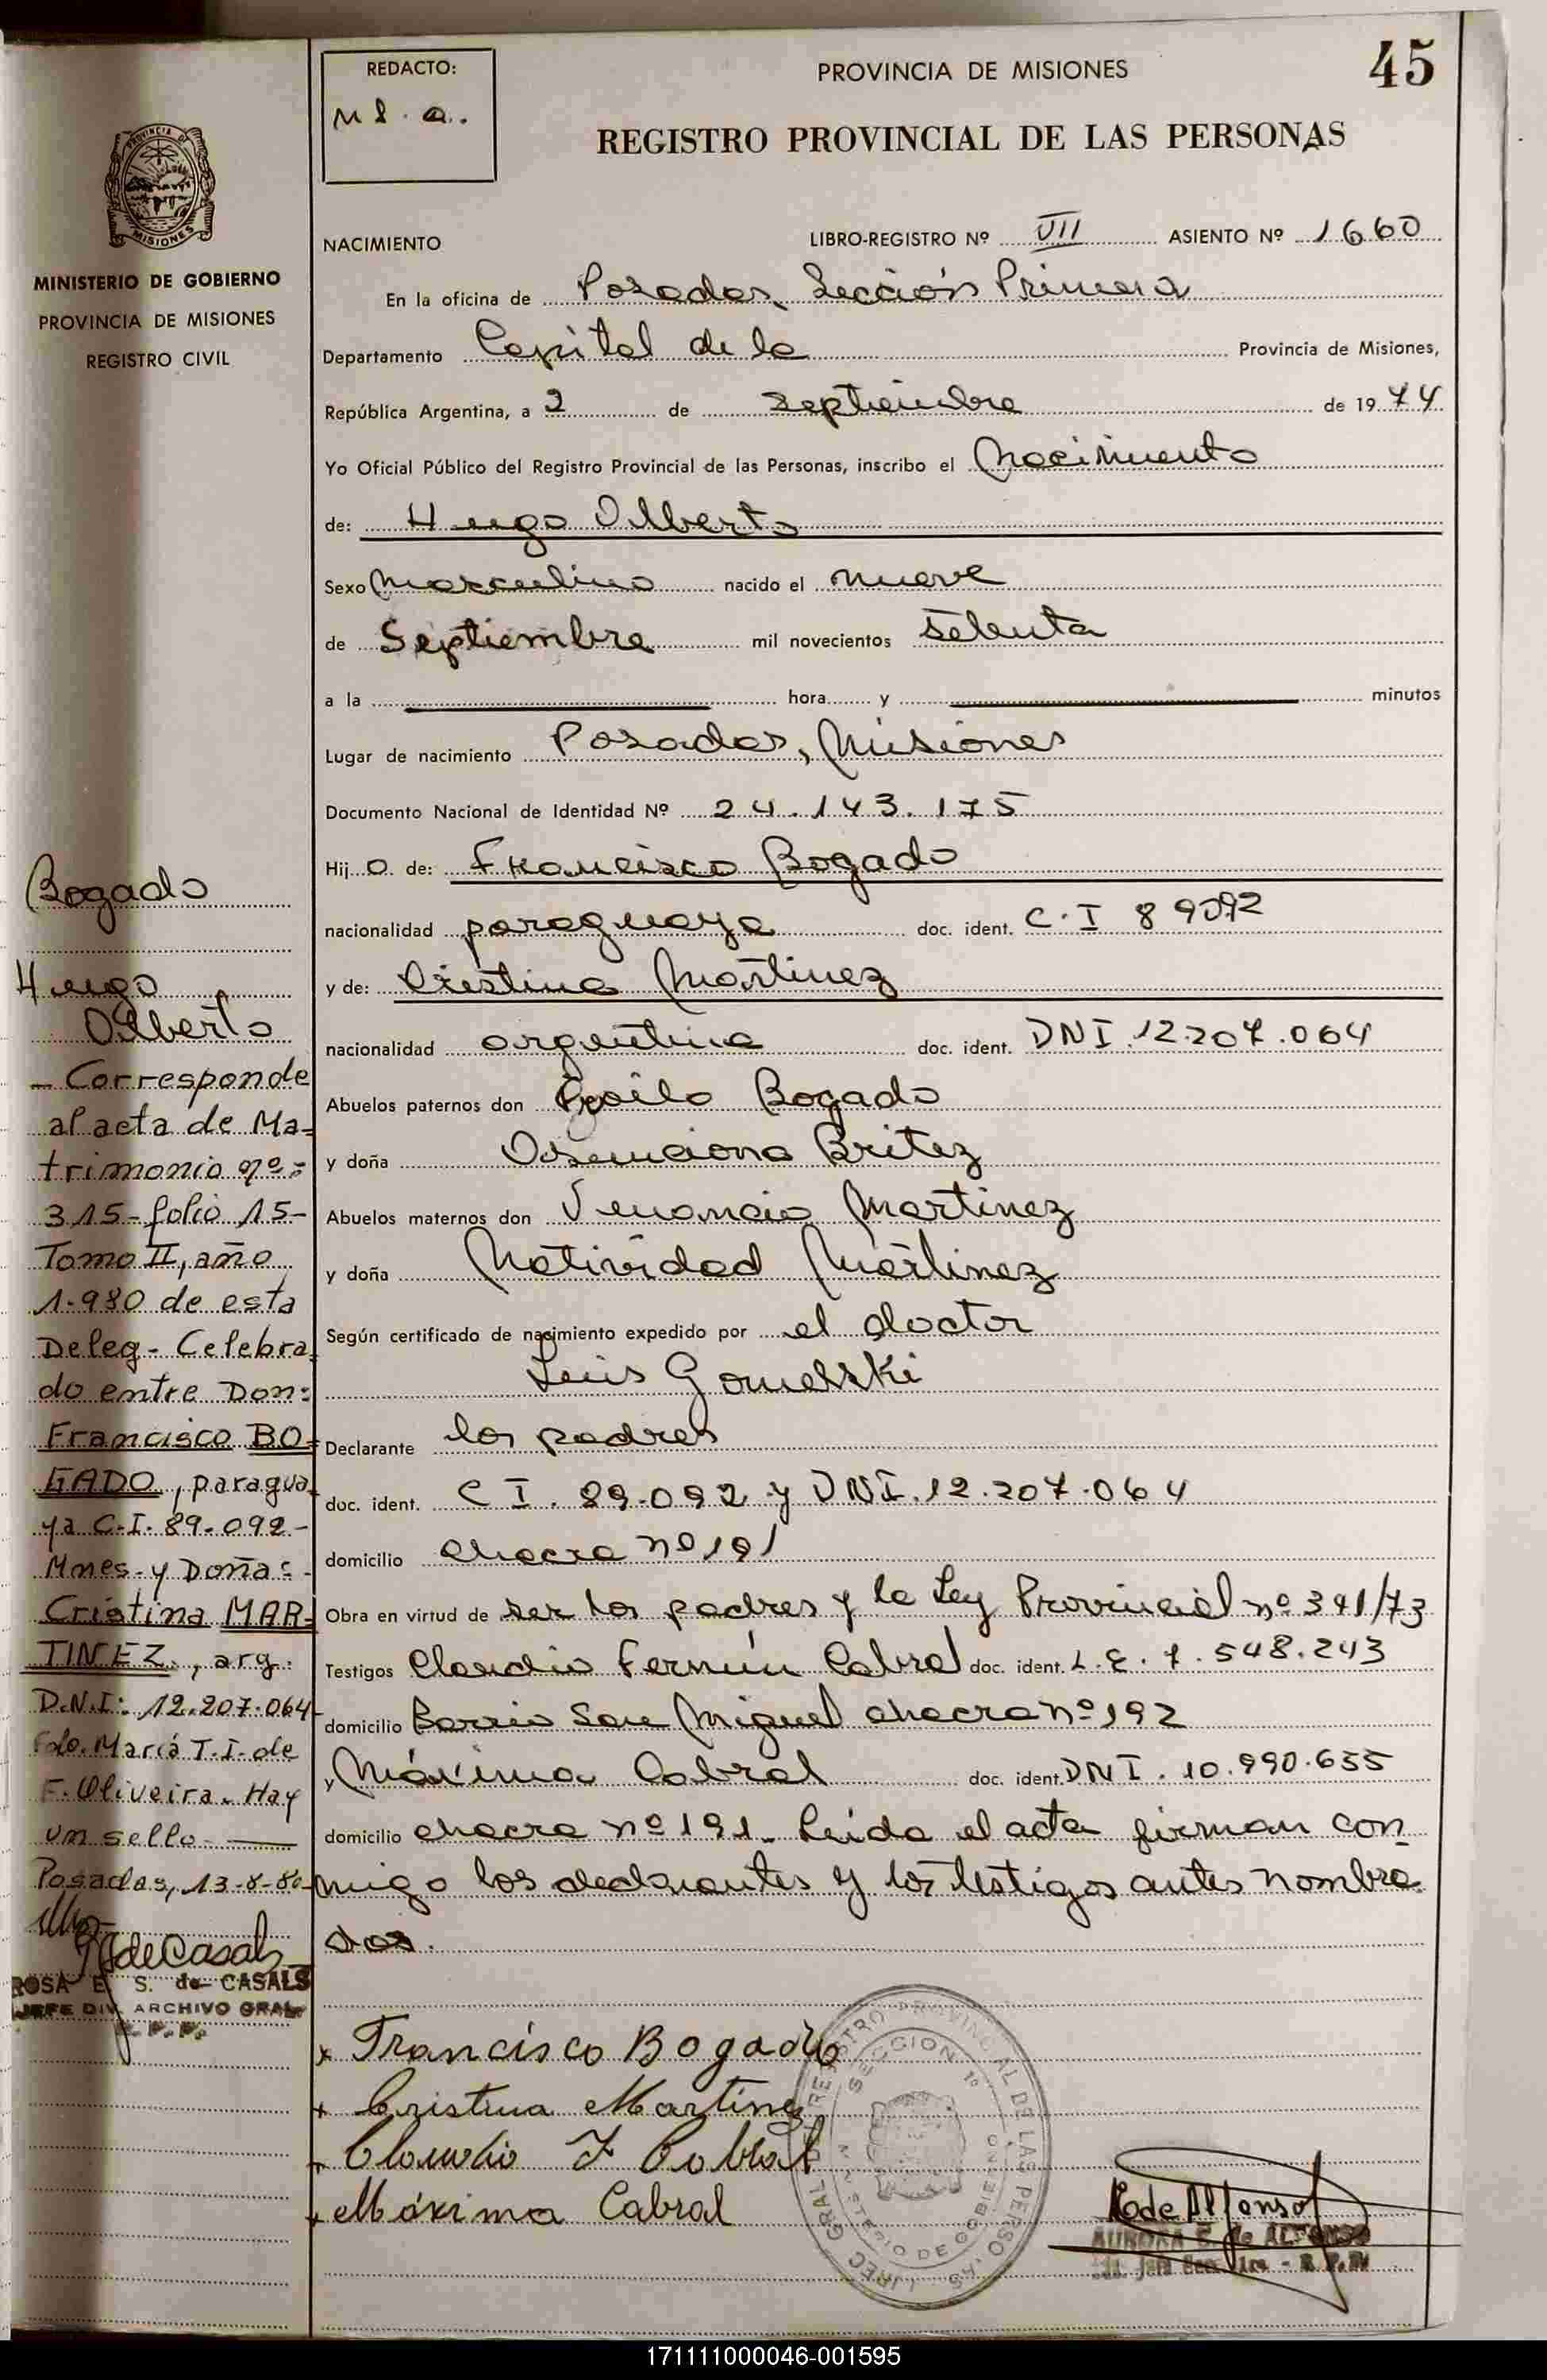 45
REDACTO:
PROVINCIA DE MISIONES
REGISTRO PROVINCIAL DE LAS PERSONAS
PROVINCIA DE
MISIONES
MINISTERIO DE GOBIERNO
PROVINCIA DE MISIONES
REGISTRO CIVIL
NACIMIENTO LIBRO-REGISTRO Nº VII ASIENTO Nº 1660
En la oficina de Posadas, Sección Primera
Departamento Capital de la Provincia de Misiones,
República Argentina, a 2 de septiembre de 1974
Yo Oficial Público del Registro Provincial de las Personas, inscribo el Nacimiento
de: Hugo Alberto
Sexo Masculino nacido el nueve
de Septiembre mil novecientos setenta
a la hora y minutos
Lugar de nacimiento Posadas, Misiones
Documento Nacional de Identidad Nº 24.143.175
Hijo de: Francisco Bogado
nacionalidad paraguaya doc. ident. C.I 89092
y de: Cristina Martinez
nacionalidad argentina doc. ident. DNI.12.207.064
Abuelos paternos don Bogado
y doña Asunciona Britez
Abuelos maternos don Venancio Martinez
y doña Natividad Martinez
Según certificado de nacimiento expedido por el doctor
Luis Gomelski
Declarante los padres
doc. ident. C I. 89.092 y DNI.12.207.064
domicilio chacra nº 191
Obra en virtud de ser los padres y la Ley Provincial nº 391/73
Testigos Claudio Fermín Cabral doc. ident. L.E. 7.548.243
domicilio Barrio San Miguel chacra nº 192
y Máxima Cabral doc. ident. DNI. 10.990.655
domicilio chacra nº 191. Leida el acta firman con
migo los declarantes y los testigos antes nombra
dos.
Bogado
Hugo
Alberto
- Corresponde
al acta de Ma-
trimonio nº=
315-folio 15-
Tomo II, año
1.980 de esta
Deleg- Celebra
do entre Don:
Francisco BO-
GADO, paragua
ya C.I. 89.092-
Mnes-y Doña:
Cristina MAR-
TINEZ., arg.
D.N.I: 12.207.064
Fdo. María T.I. de
F. Oliveira. Hay
un sello.
Posadas, 13-8-80
RdeCasals
ROSA E. S. de CASALS
JEFE DIV. ARCHIVO GRAL.
R. P. P.
x Francisco Bogado
x Cristina Martinez
x Claudio F Cabral
x Máxima Cabral
REGISTRO PROVINCIAL DE LAS PERSONAS
SECCION 1º
MINISTERIO DE GOBIERNO
AURORA de ALFONSO
171111000046-001595